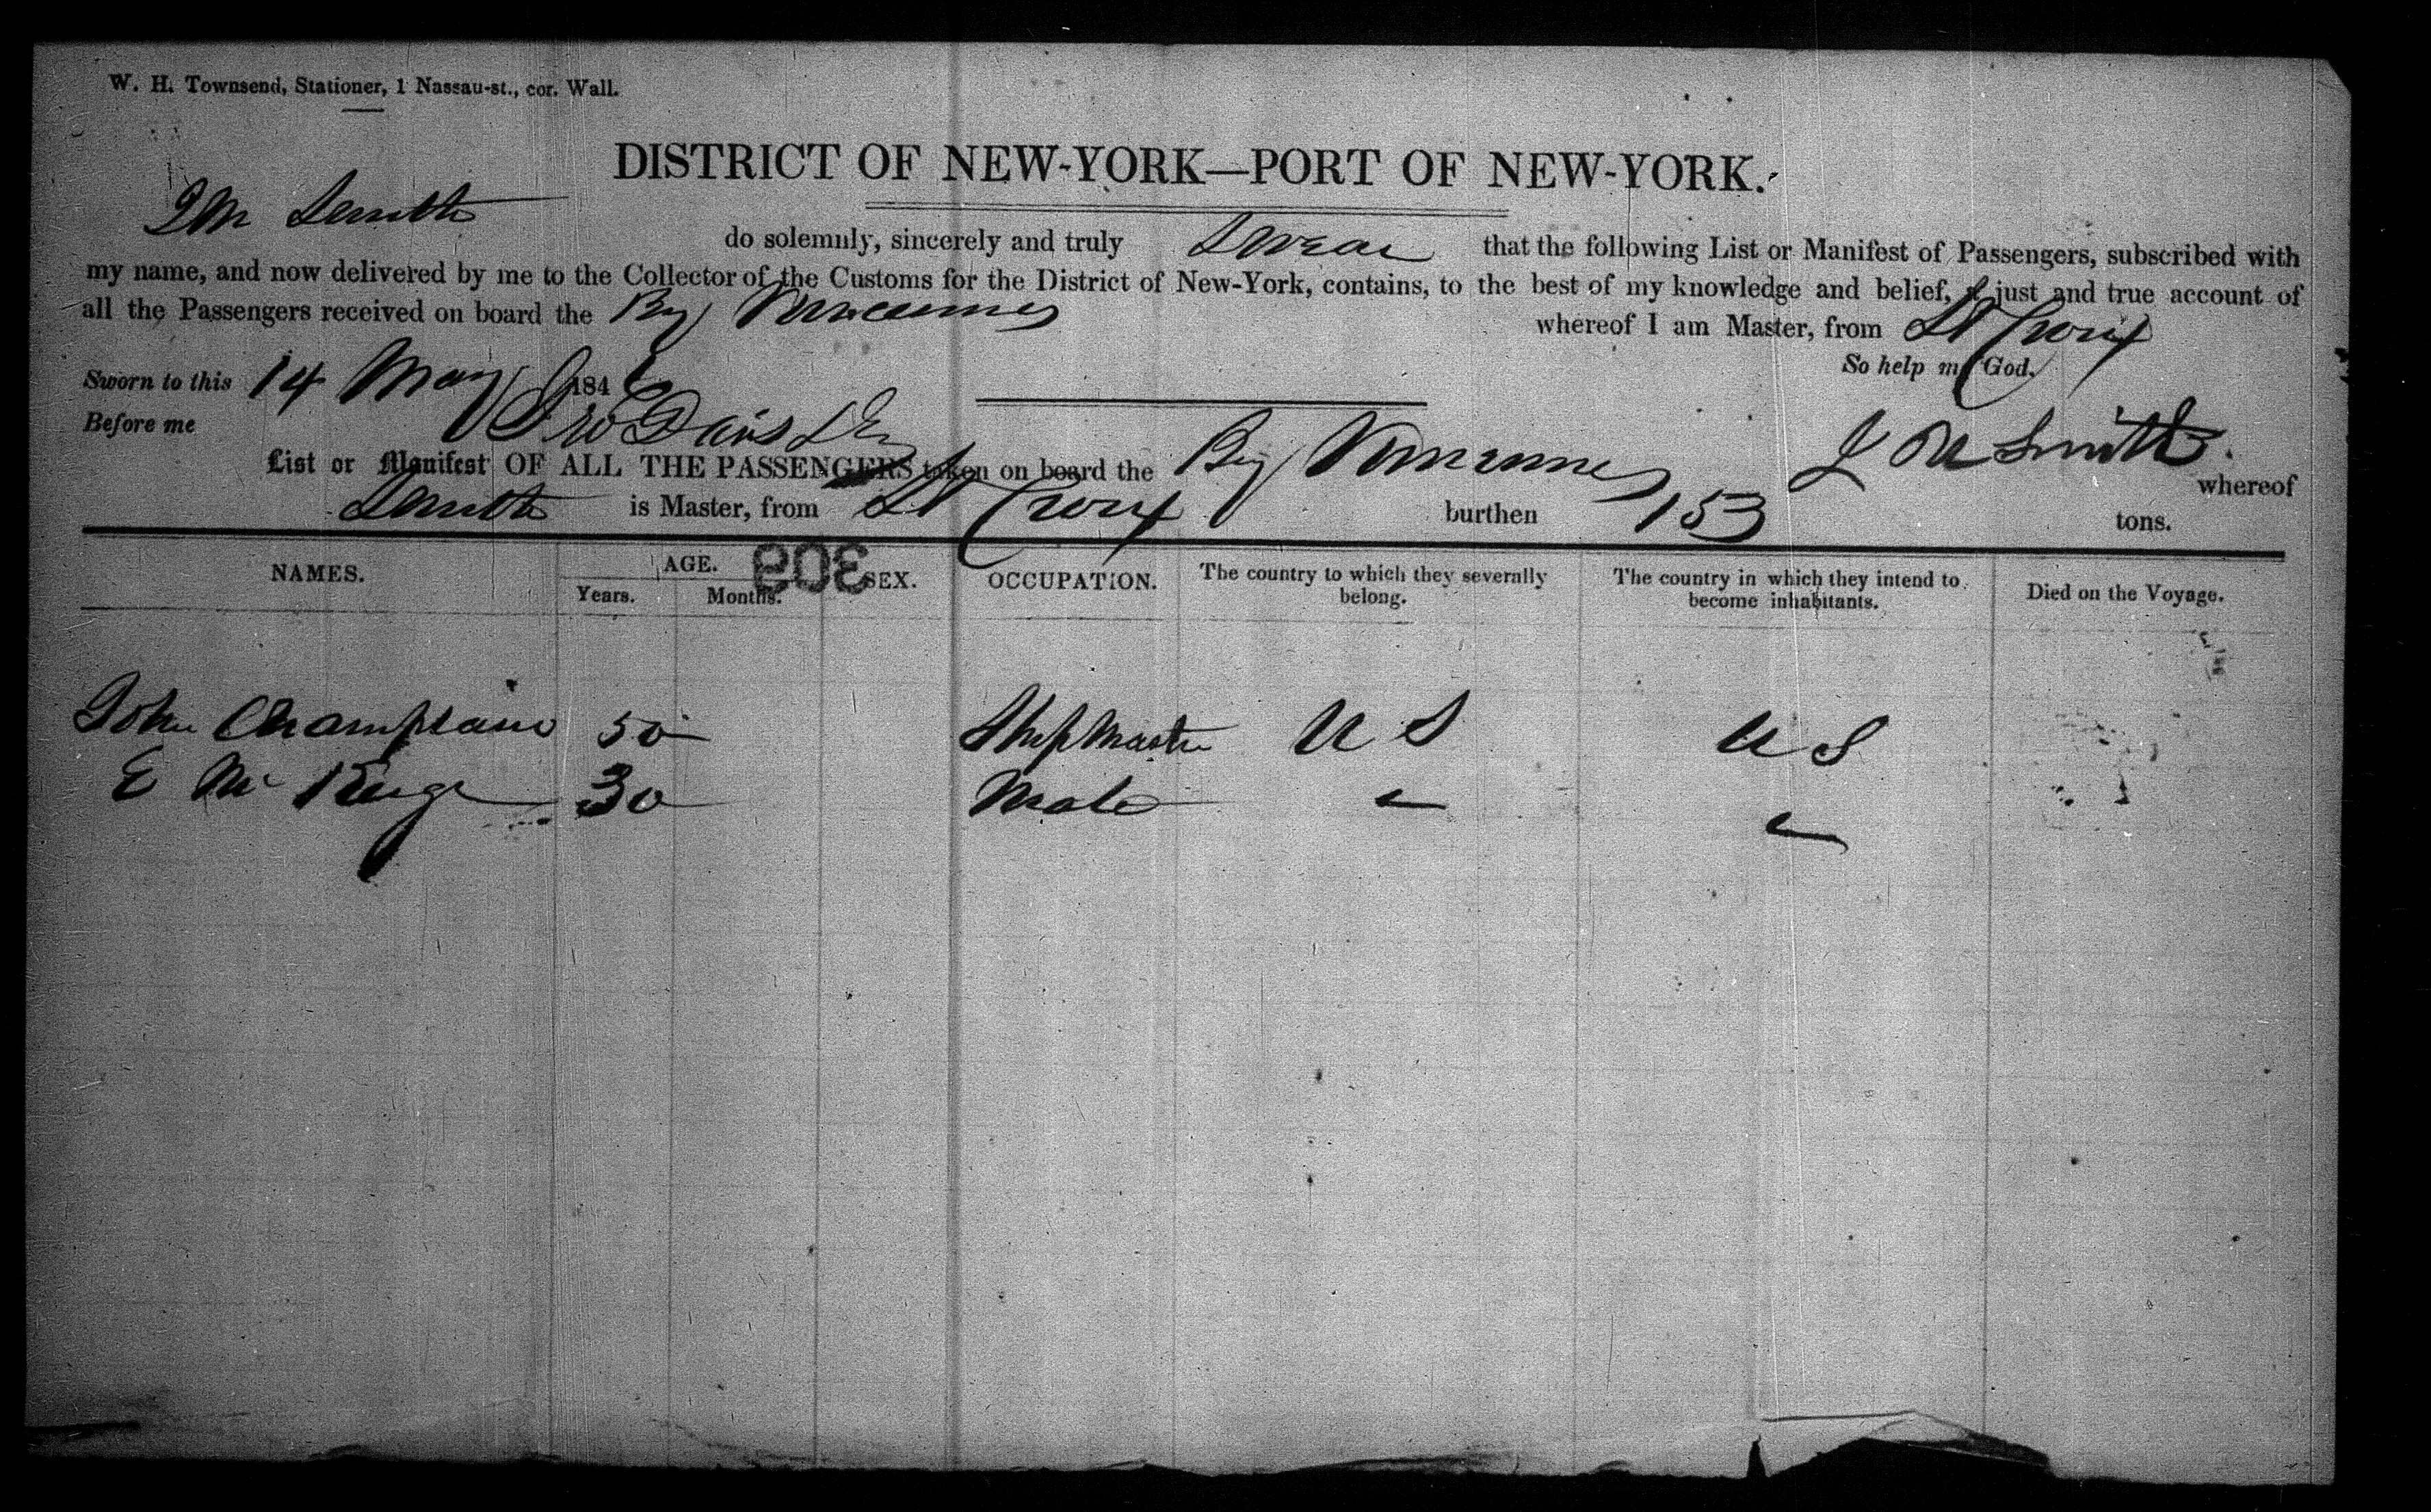 W. H. Townsend, Stationer, 1 Nassau-st., cor. Wall.
DISTRICT OF NEW-YORK—PORT OF NEW-YORK.
I M Smith do solemnly, sincerely and truly Swear that the following List or Manifest of Passengers, subscribed with
my name, and now delivered by me to the Collector of the Customs for the District of New-York, contains, to the best of my knowledge and belief, a just and true account of
all the Passengers received on board the Brig whereof I am Master, from St Croix
So help me God.
Sworn to this 14 May 184
Before me Davis
List or Manifest OF ALL THE PASSENGERS taken on board the Brig whereof
J M Smith.
Smith is Master, from St Croix burthen 153 tons.
309
NAMES. AGE. SEX. OCCUPATION. The country to which they severally belong. The country in which they intend to become inhabitants. Died on the Voyage.
Years. Months.
John Champlain 50 Ship Master U S U S
E Mc 30 Mate "  "